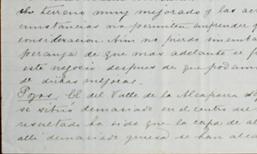 su terreno muy mejorado y las
cunstancias no permiten emprender
consideracion. Aun no pierdo
peranza de que mas adelante se
este negocio despues de que podam
de dichas mejoras.
Pozos. El del Valle de la Alcaparra
se situó demasiado en el centro del
resultado ha sido que la capa de
allí demasiado gruesa se han